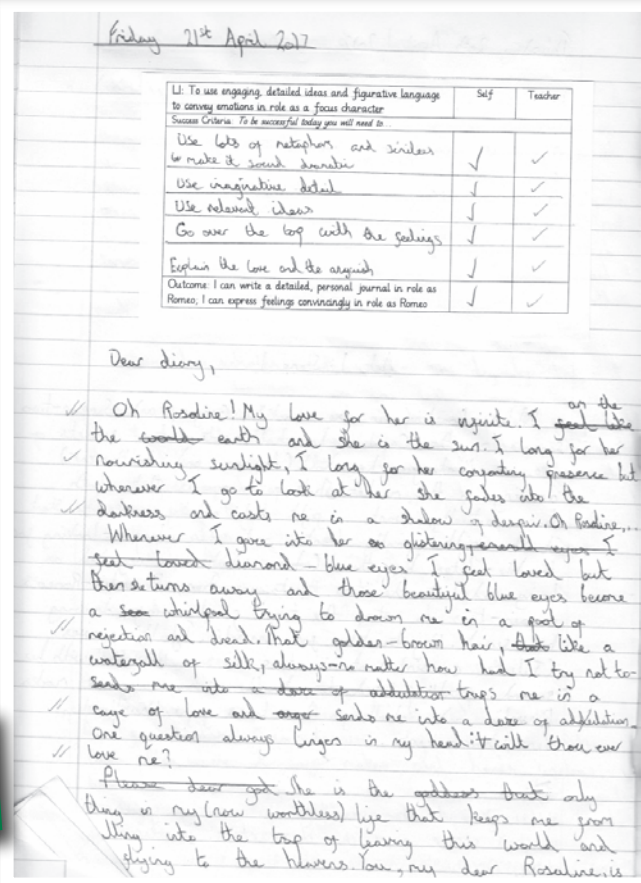 Friday 21st April 2017
LI: To use engaging, detailed ideas and figurative language
to convey emotions in role as a focus character
Self
Teacher
Success Criteria: To be successful today you will need to...
Use lots of metaphors and similes
to make it sound dramatic
Use imaginative detail
Use relevant ideas
Go over the top with the feelings
Explain the love and the anguish
Outcome: I can write a detailed, personal journal in role as
Romeo; I can express feelings convincingly in role as Romeo
Dear diary,
Oh Rosaline! My love for her is infinite. I am the
the world earth and she is the sun. I long for her
nourishing sunlight, I long for her comforting presence but
whenever I go to look at her she fades into the
darkness and casts me in a shadow of despair. Oh Rosaline,...
Whenever I gaze into her so glistering, emerald eyes I
feel loved diamond-blue eyes I feel loved but
then she turns away and those beautiful blue eyes become
a whirlpool trying to drown me in a pool of
rejection and dread. That golden-brown hair, that like a
waterfall of silk, always-no matter how hard I try not to-
sends me into a daze of adulation traps me in a
cage of love and anger sends me into a daze of adulation.
One question always lingers in my head: will thou ever
love me?
Please dear god She is the goddess that only
thing in my (now worthless) life that keeps me from
lling into the trap of leaving this world and
flying to the heavens. You, my dear Rosaline, is